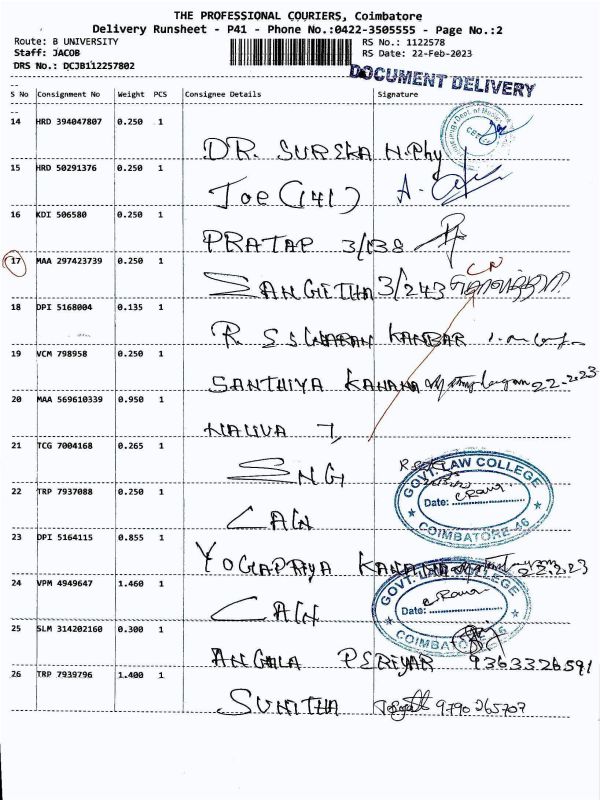 THE PROFESSIONAL COURIERS, Coimbatore
Delivery Runsheet - P41 - Phone No.:0422-3505555 - Page No.:2
Route: B UNIVERSITY RS No.: 1122578
Staff: JACOB RS Date: 22-Feb-2023
DRS No.: DCJB112257802
DOCUMENT DELIVERY
S No Consignment No Weight PCS Consignee Details Signature
14 HRD 394047807 0.250 1
DR. SUREKA N.Phy
15 HRD 50291376 0.250 1
Joe (141)
16 KDI 506580 0.250 1
PRATAP 3/138
17 MAA 297423739 0.250 1
SANGETHA 3/243
18 DPI 5168004 0.135 1
R. KANBAR
19 VCM 798958 0.250 1
SANTHIYA KANANA 22-2023
20 MAA 569610339 0.950 1
21 TCG 7004168 0.265 1
SNG
22 TRP 7937088 0.250 1
GOVT. LAW COLLEGE
Date:
COIMBATORE-46
LAW
23 DPI 5164115 0.855 1
YOGAPRIYA KANANA 22.2.23
24 VPM 4949647 1.460 1
GOVT. LAW COLLEGE
Date:
COIMBATORE-46
LAW
25 SLM 314202160 0.300 1
ANGALA PERIYAR 9363326591
26 TRP 7939796 1.400 1
SUNITHA 9790265707